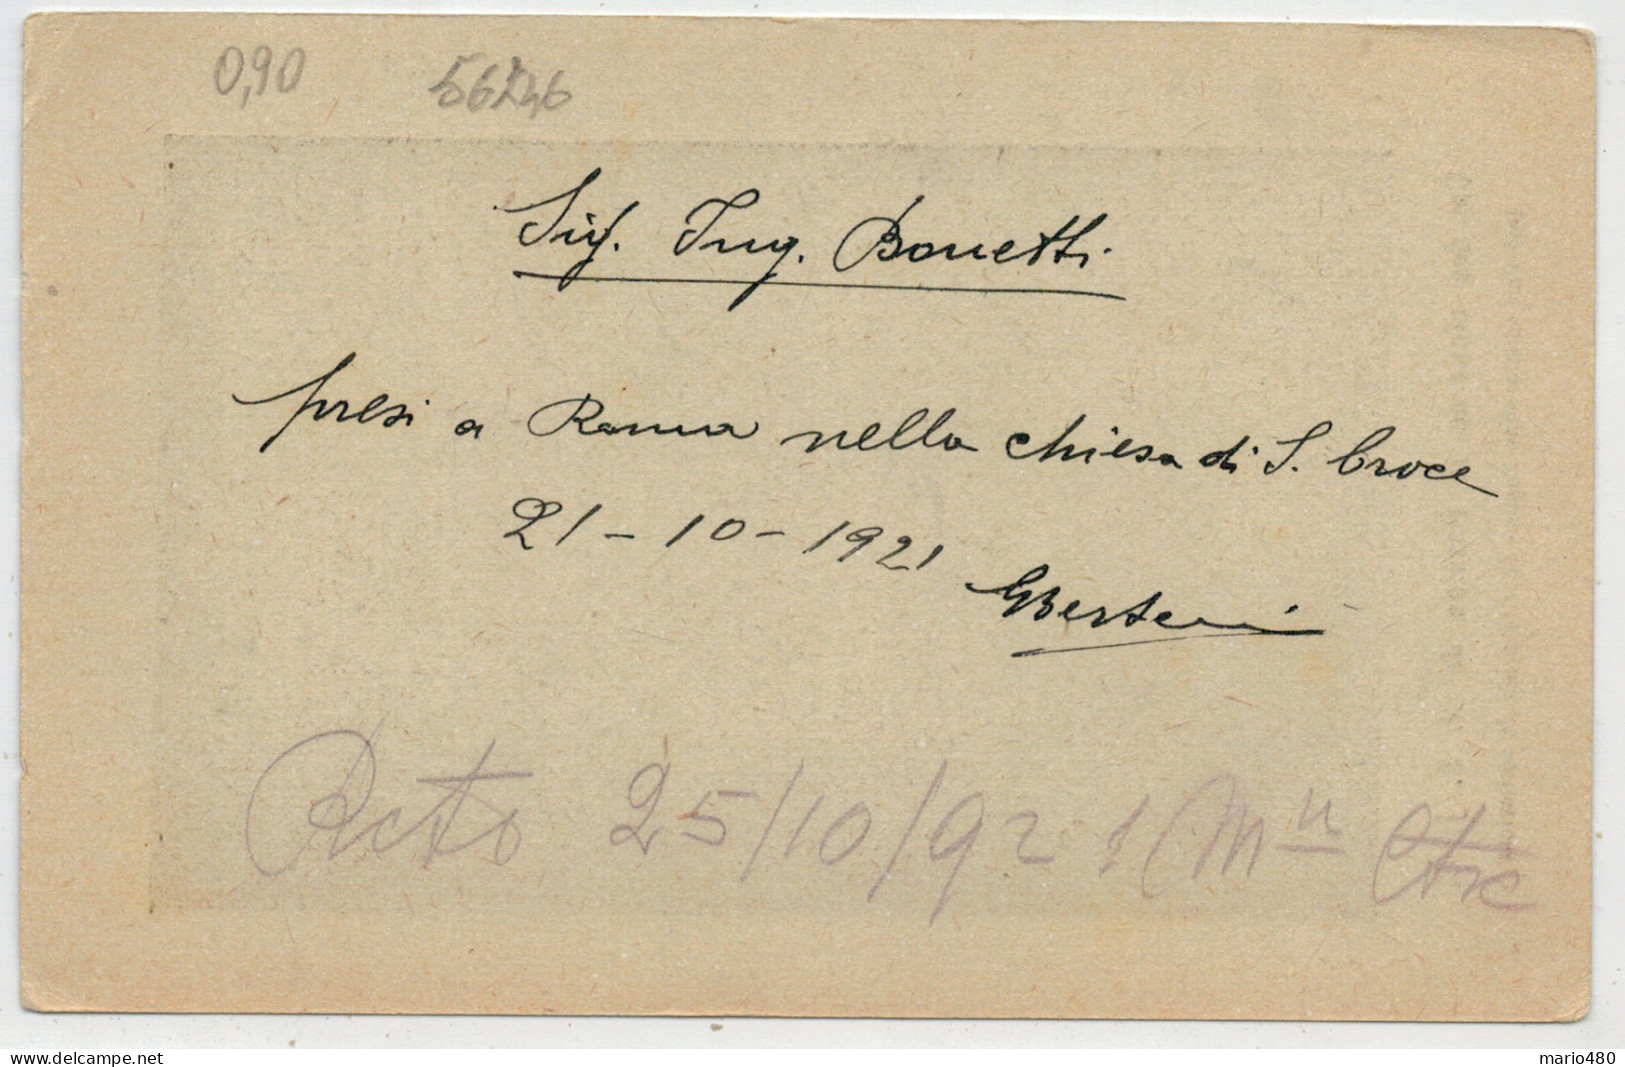 0,90
Sig. Ing. Bonetti
presi a Roma nella chiesa di S. Croce
21-10-1921
GBerteni
Rcto 25/10/921
www.delcampe.net
mario480